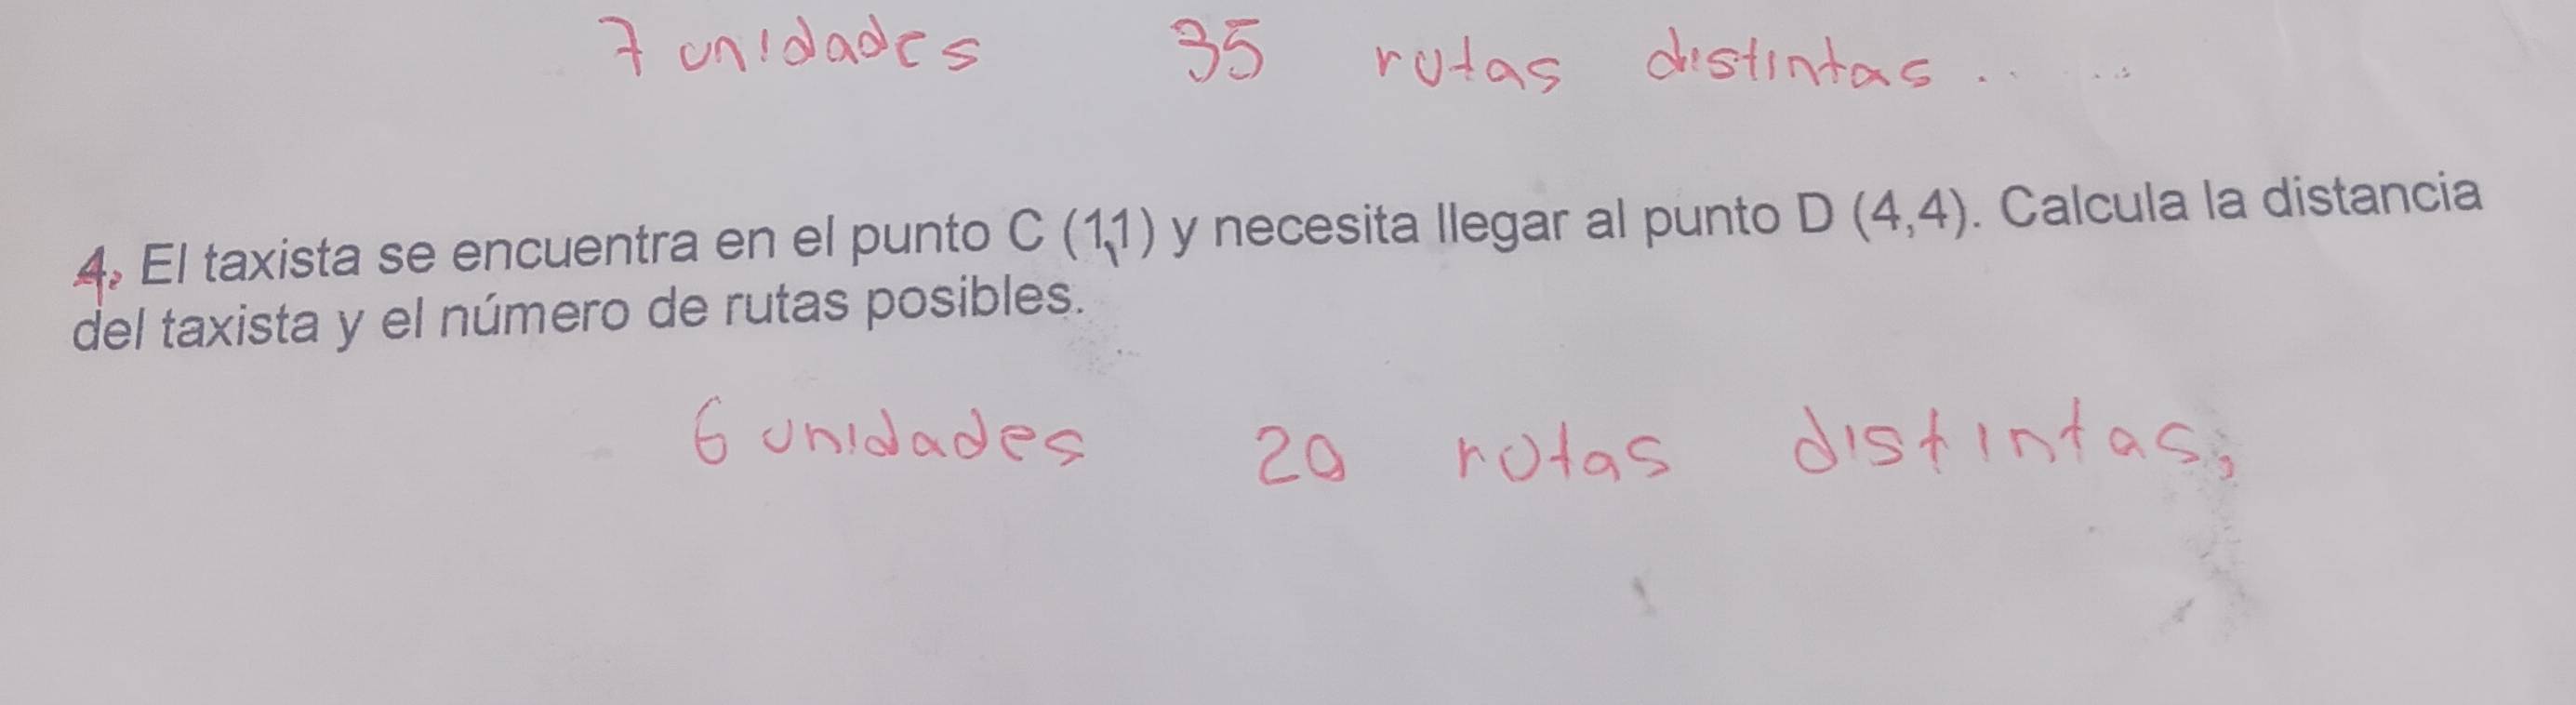 7 unidades 35 rutas distintas.. ...
4. El taxista se encuentra en el punto C (1,1) y necesita llegar al punto D (4,4). Calcula la distancia
del taxista y el número de rutas posibles.
6 unidades 20 rutas distintas.